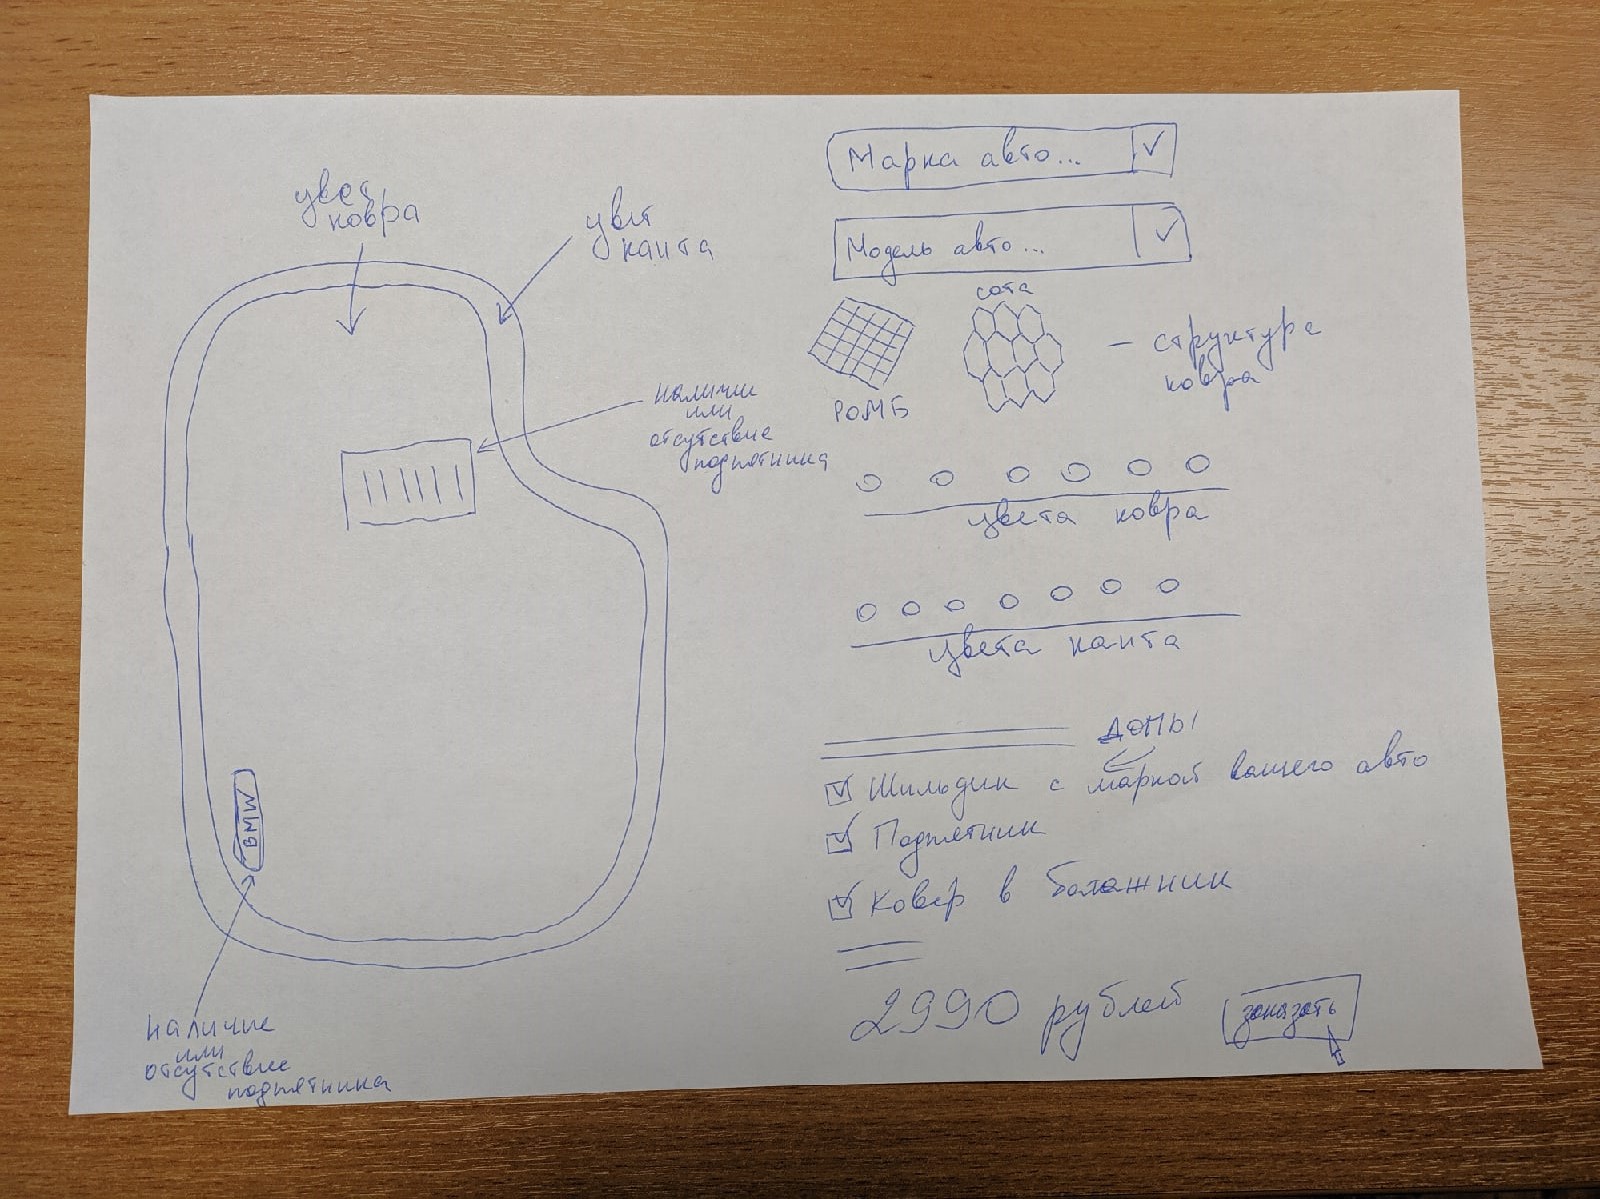 цвет
ковра
цвет
канта
наличие
или
отсутствие
подпятника
BMW
наличие
или
отсутствие
подпятника
Марка авто...
Модель авто...
РОМБ
сота
- структура
ковра
цвета ковра
цвета канта
ДОПЫ
Шильдик с маркой вашего авто
Подпятник
Ковер в багажник
2990 рублей
заказать